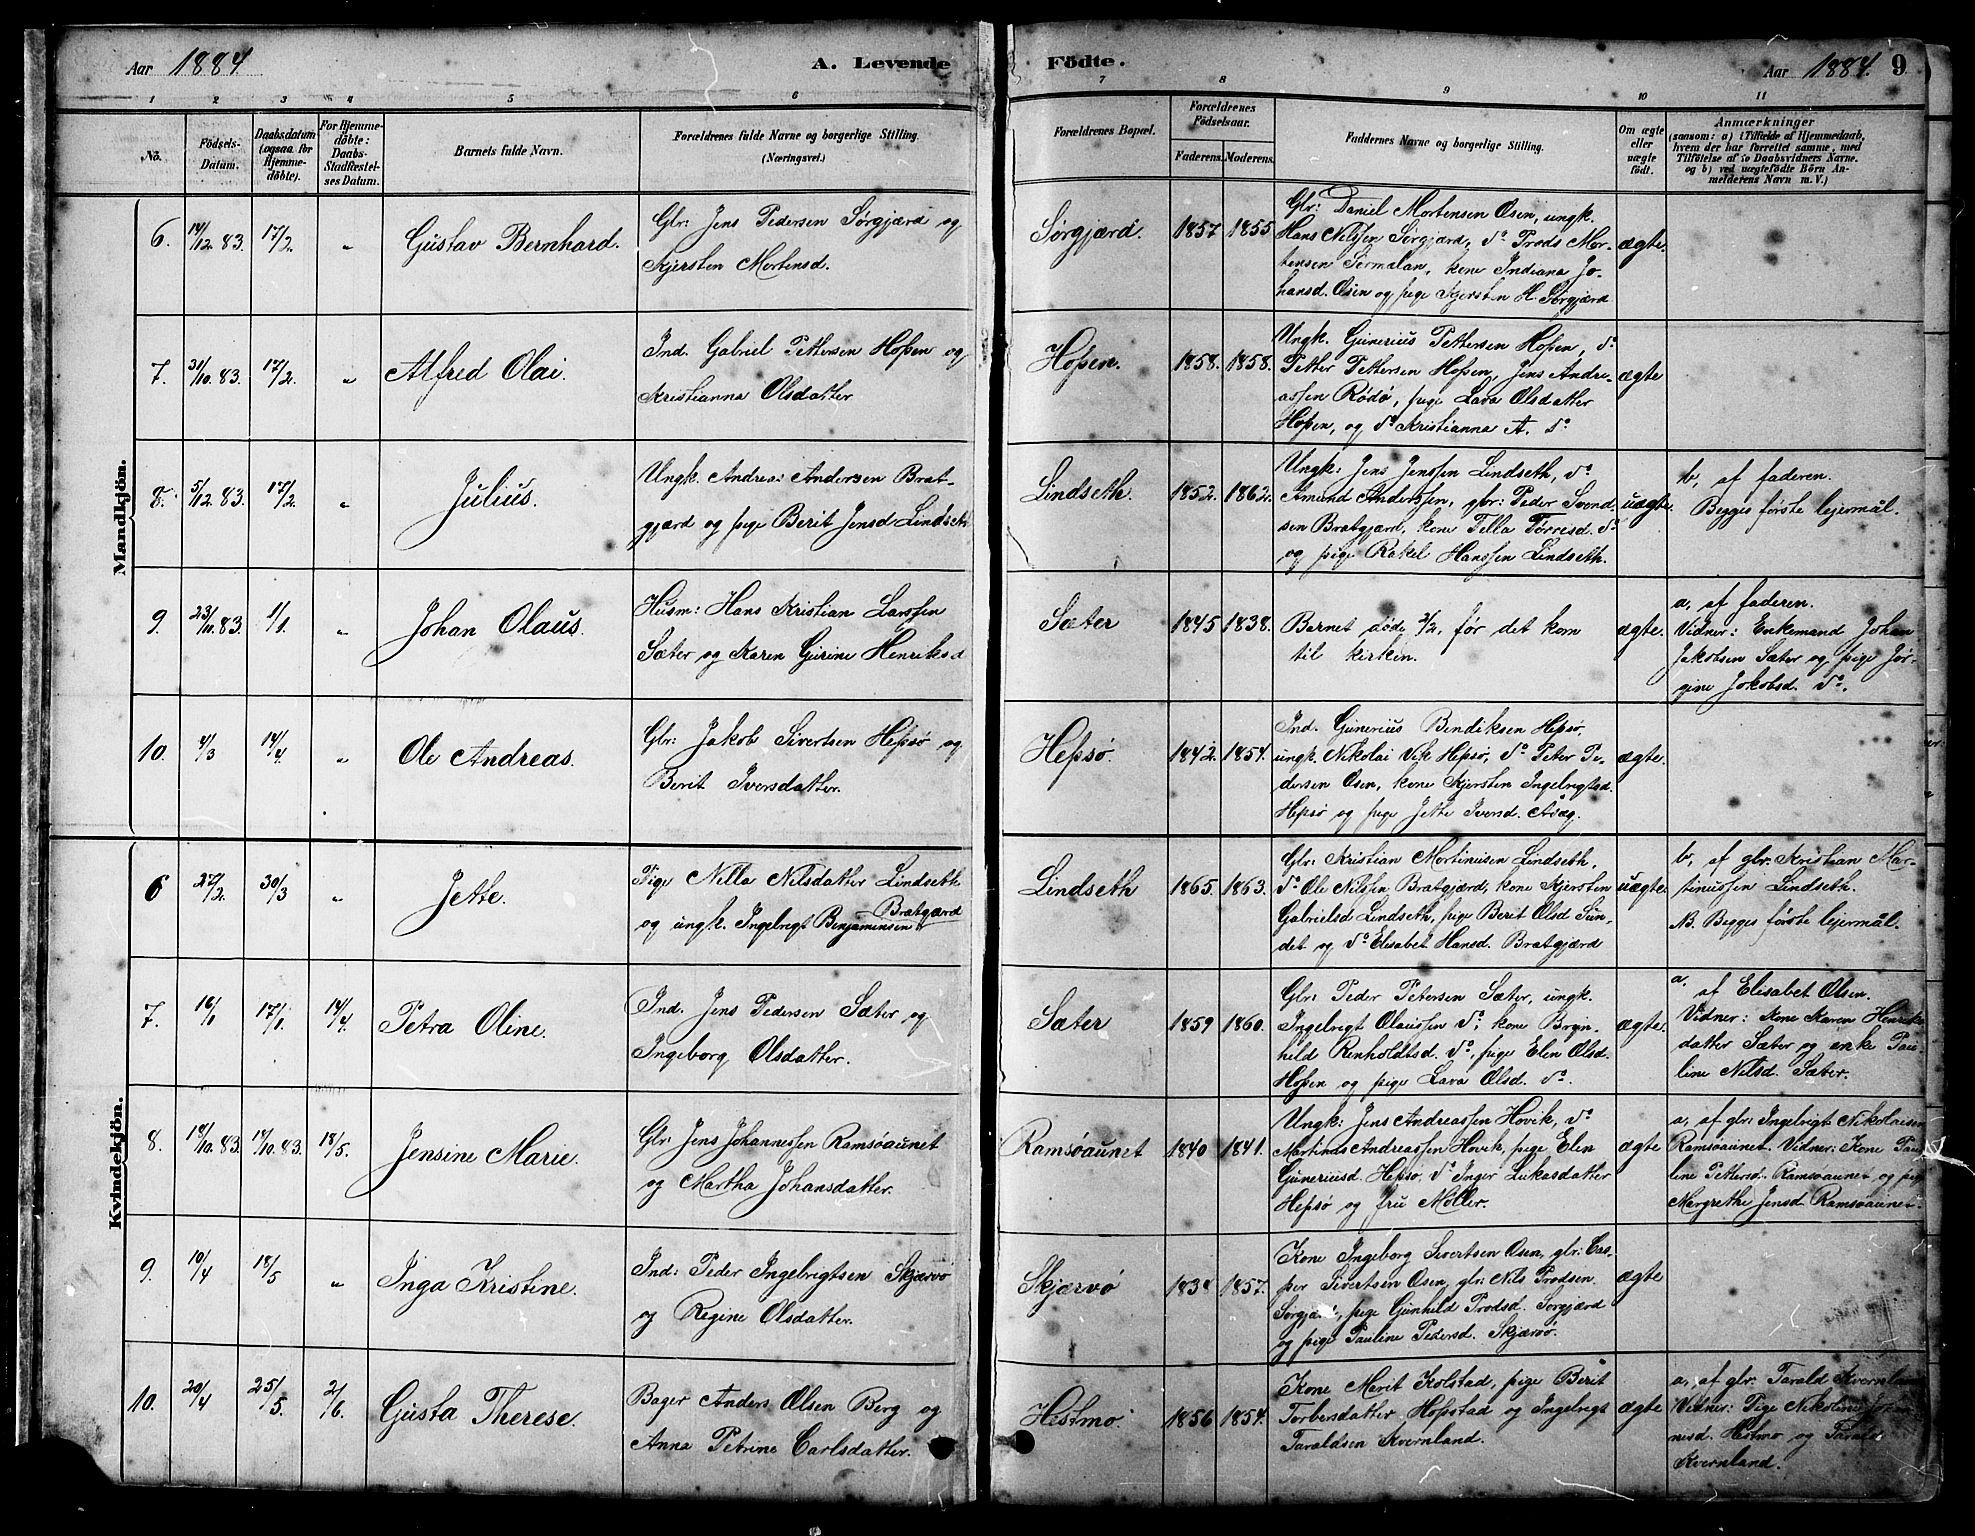 Aar 1884
A. Levende
Födte.
Aar 1884. 9
1 2 3 4 5 6 7 8 9 10 11
No.
Födsels-
Datum.
Daabsdatum
(ogsaa for
Hjemme-
döbte).
For Hjemme-
döbte:
Daabs-
Stadfæstel-
ses Datum.
Barnets fulde Navn.
Forældrenes fulde Navne og borgerlige Stilling.
(Næringsvei.)
Forældrenes Bopæl.
Forældrenes
Födselsaar.
Faderens. Moderens.
Faddernes Navne og borgerlige Stilling.
Om ægte
eller
uægte
födt.
Anmærkninger
(saasom: a) i Tilfælde af Hjemmedaab,
hvem der har forrettet samme, med
Tilföielse af to Daabsvidners Navne.
og b) ved uægtefödte Börn An-
melderens Navn m. V.)
Mandkjön.
6. 14/12 83. 17/2 "
Gustav Bernhard.
Glr: Jens Pedersen Sørgjærd og
Kjersten Mortensd.
Sørgjærd. 1857 1855
Glr: Daniel Mortensen Osen, ungk.
Hans Nilssen Sørgjærd, do Trods Mor-
tensen Sørmalan, kone Indiana Jo-
hansd. Osen og pige Kjersten H. Sørgjærd
ægte.
7. 31/10 83. 17/2. "
Alfred Olai.
Ind. Gabriel Pettersen Hopen og
Kristianna Olsdatter
Hopen. 1858. 1858.
Ungk. Gunerius Pettersen Hopen, do
Petter Pettersen Hopen, Jens Andre-
assen Rödö, pige Lava Olsdatter
Hopen, og do Kristianna A. do
ægte
8. 5/12 83. 17/2 "
Julius.
Ungk. Andreas Andersen Brat-
gjærd og pige Berit Jensd Lindseth
Lindseth. 1852. 1862.
Ungk: Jens Jenssen Lindseth, do
Amund Anderssen, glr: Peder Svend
sen Bratgjærd, kone Pella Torrisd. do
og pige Rakel Hanssen Lindseth.
uægte.
b, af faderen.
Begges første lejermål.
9. 23/11 83. 1/1 "
Johan Olaus.
Husm: Hans Kristian Larssen
Sæter og Karen Gurine Henriksd
Sæter 1845 1838.
Barnet døde 2/2, før det kom
til kirken.
ægte.
a, af faderen.
Vidner: Enkemand Johan
Jakobsen Sæter og pige Jør-
gine Jakobsd. do.
10. 4/3 14/4 "
Ole Andreas.
Glr: Jakob Sivertsen Hepsø og
Berit Iversdatter.
Hepsø. 1842. 1854.
Ind. Gunerius Bendiksen Hepsø,
ungk. Nikolai Vik Hepsø, do Peter Pe-
dersen Osen, kone Kjersten Ingebrigtsd.
Hepsø og pige Jette Iversd. Aaag.
ægte.
Kvindekjön.
6 27/2. 30/3 "
Jette.
Pige Nella Nilsdatter Lindseth
og ungk. Ingebrigt Benjaminsen Bratgjærd
Lindseth 1865. 1863.
Glr: Kristian Martinusen Lindseth,
do Ole Nilssen Bratgjærd, kone Kjersten
Gabrielsd Lindseth, pige Berit Olsd Sun-
det og do Elisabet Hansd. Bratgjærd
uægte.
b, af glr. Kristian Mar-
tinussen Lindseth.
NB. Begges første lejermål.
7. 16/1 17/1. 14/4.
Petra Oline.
Ind. Jens Pedersen Sæter og
Ingeborg Olsdatter.
Sæter 1859 1860.
Glr: Peder Petersen Sæter, ungk.
Ingebrigt Olaussen do, kone Bryn-
hild Renholdtsd. do, pige Elen Olsd.
Hopen og pige Lava Olsd. do.
ægte.
a, af Elisabet Olsen.
Vidner: Kone Karen Henriks
datter Sæter og enke Pau-
line Nilsd. Sæter.
8. 18/10 83. 18/10 83. 18/5.
Jensine Marie.
Glr: Jens Johannessen Ramsøaunet
og Martha Johansdatter.
Ramsøaunet 1840 1841.
Ungk: Jens Andreassen Hovik, do
Martinus Andreassen Hovik, pige Elen
Guneriusd. Hepsø, do Inger Lukasdatter
Hepsø og fru Møller.
ægte
a, af glr. Ingebrigt Nikolaisen
Ramsøaunet. Vidner: Kone Pau
line Pettersd. Ramsøaunet og pige
Margrethe Jensd. Ramsøaunet.
9. 10/4 18/5 "
Inga Kristine.
Ind: Peder Ingebrigtsen Skjærvø
og Regine Olsdatter.
Skjærvø 1834 1857.
Kone Ingeborg Sivertsen Osen, glr: Cas-
per Sivertsen Osen, glr: Nils Trodsen.
Sørgjærd, pige Gunhild Trodsd. Sørgjærd
og pige Pauline Pedersd. Skjærvø.
ægte
10. 20/4 25/5. 2/6.
Gusta Therese.
Bager Anders Olsen Berg og
Anna Petrine Carlsdatter.
Hestmo. 1856 1854.
Kone Marit Kolstad, pige Berit
Torbersdatter Hopstad og Ingebrigt
Taraldsen Kvernland.
ægte
a, af glr. Tarald Kvernland
Vidner: Pige Nikoline
Hestmo og Tarald
Kvernland.